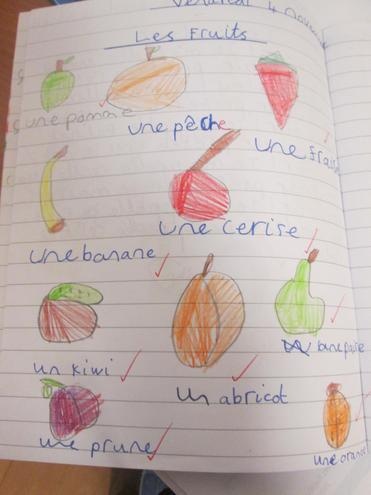 Vendredi 4
Les Fruits
une pomme
une pêche
une frais
une banane
une cerise
un kiwi
un abricot
une poire
une prune
une orange